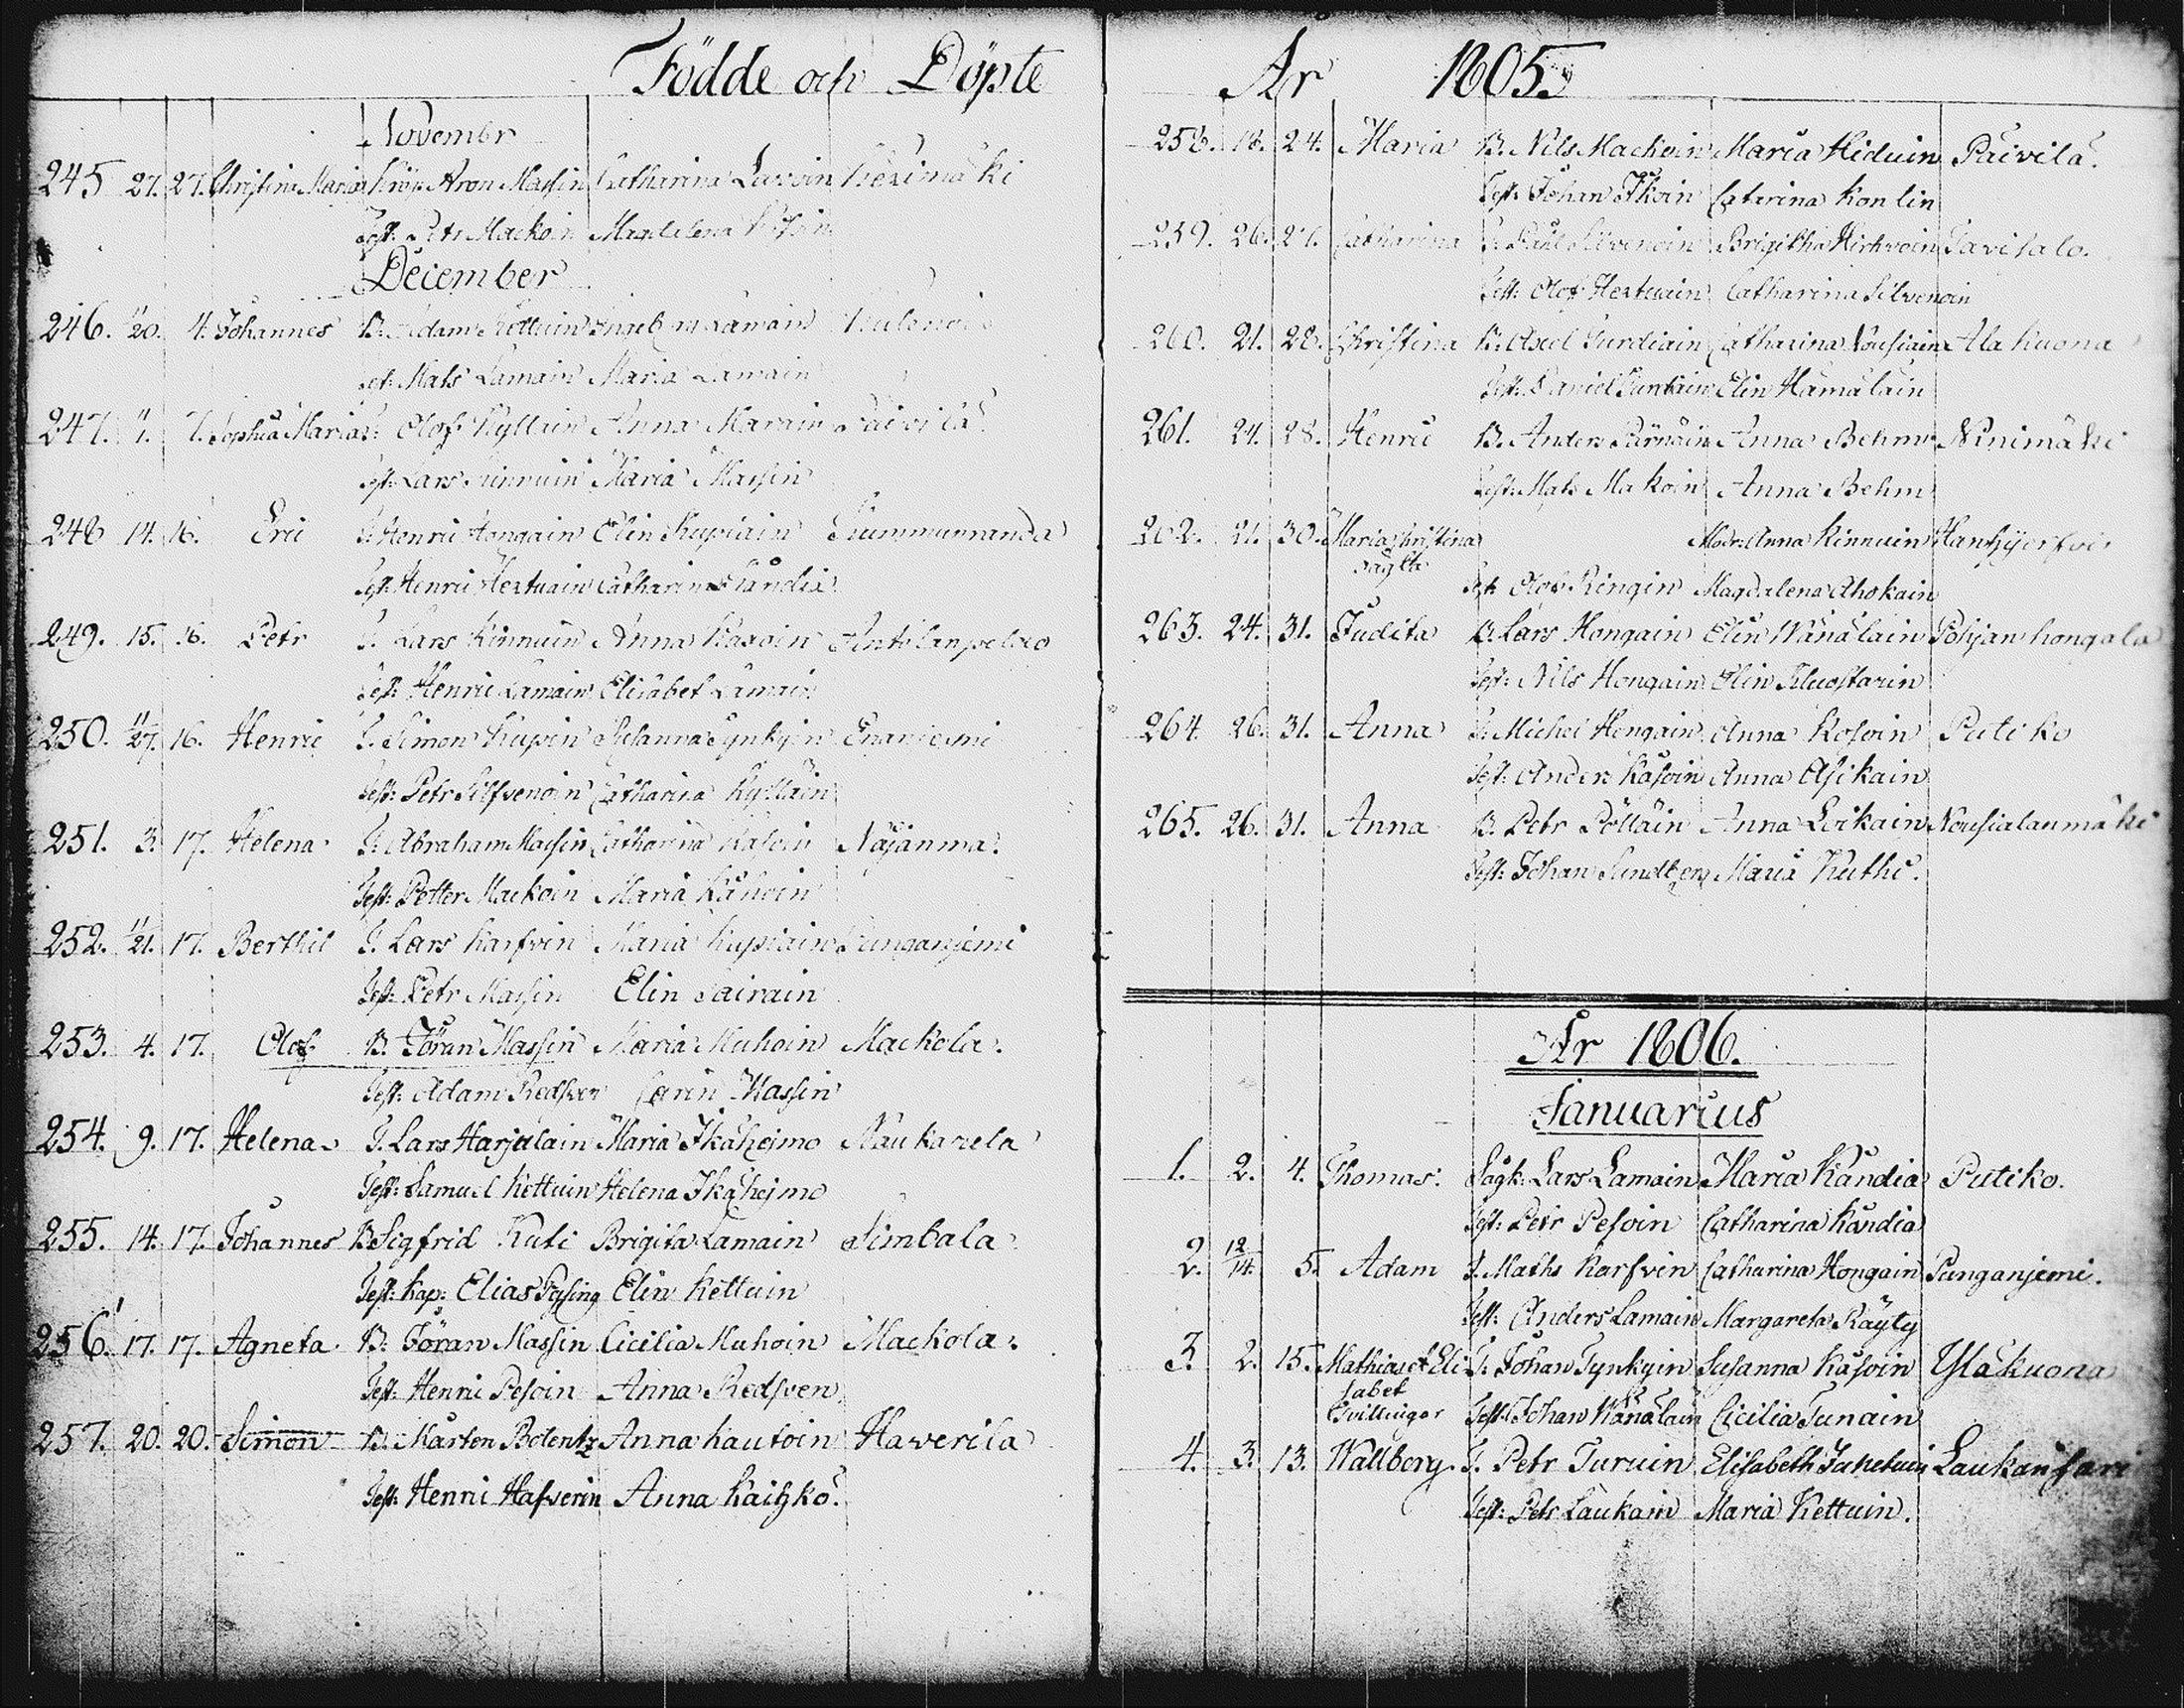 Födde och Döpte
Novembr
245 27. 27. Christina Maria Aron Massin Catharina Kerimäki
Test: Petr Mackoin Magdalena
December
246. 11/20. 4. Johannes B. Adam Kettuin Lamain
Test: Mats Lamain Maria Lamain
247. 7. 7. Sophia Maria Olof Kyllain Anna Päivilä
Test: Lars Kinnuin Maria Massin
248 14. 16. Eric T. Henric Hongain Elin Kupiain Kummunranda
Test: Henric Hertuain Catharina Kändia
249. 15. 16. Petr T. Lars Kinnuin Anna Kasoin
Test: Henric Lamain Elisabet Lamain
250. 11/27. 16. Henric T. Simon Susanna Tynkyin Enaniemi
Test: Petr Silfvenoin Catharina Kylläin
251. 3. 17. Helena T. Abraham Massin Catharina Kasoin
Test: Petter Mackoin Maria
252. 11/21. 17. Berthil T. Lars Karfvin Maria Kupiain Punganjemi
Test: Petr Massin Elin
253. 4. 17. Olof B. Jöran Massin Maria Muhoin Mackola.
Test: Adam Redsven Carin Massin
254. 9. 17. Helena T. Lars Harjulain Maria Ikäheimo Naukarela
Test: Samuel Kettuin Helena Ikäheimo
255. 14. 17. Johannes B. Sigfrid Kuti Brigita Lamain Simbala
Test: Kap: Elias Elin Kettuin
256. 17. 17. Agneta B. Jöran Massin Cicilia Muhoin Mackola.
Test: Henric Pesoin Anna Redsven
257. 20. 20. Simon B. Mårten Bolentz Anna Kautoin Haverila
Test: Henric Hafverin Anna Kaitzko.
År 1805.
258. 18. 24. Maria B. Nils Mackoin Maria Hiduin Päivilä.
Test: Johan Ikoin Catarina Konlin
259. 26. 27. Catharina T. Paul Silvenoin Brigitha Hirhvoin Savisalo.
Test: Olof Hertuain Catharina Silvenoin
260. 21. 28. Christina B. Axel Turdiain Catharina Nousiain Ala kuona
Test: Daniel Elin Hämäläin
261. 24. 28. Henric B. Anders Pärnäin Anna Behm Ninimäki
Test: Mats Makoin Anna Behm
262. 21. 30. Maria Christina Modr: Anna Kinnuin
oägta
Test: Olof Ringin Magdalena Ahokain
263. 24. 31. Judita B. Lars Hongain Elin Wänäläin Pohjan hongala
Test: Nils Hongain Elin Kluostarin
264 26. 31. Anna T. Michel Hongain Anna Kosoin Putiko
Test: Anders Kasoin Anna Asikain
265. 26. 31. Anna B. Petr Pölläin Anna Loikain Nousialanmäki
Test: Johan Sundberg Maria Kuthi.
År 1806.
Januarius
1. 2. 4. Thomas. Sågk: Lars Lamain Maria Kändia Putiko.
Test: Petr Pesoin Catharina Kändia
2. 12/14. 5. Adam T. Maths Karfvin Catharina Hongain Punganjemi.
Test: Anders Lamain Margareta Räyty
3. 2. 15. Mathias et Eli T. Johan Tynkyin Susanna Kasoin Yläkuona
sabet
Tvillingar Test: Johan Wänäläin Cicilia Tunain
4. 3. 13. Wallborg. T. Petr Turuin Elisabeth Laukansari
Test: Petr Laukain Maria Kettuin.